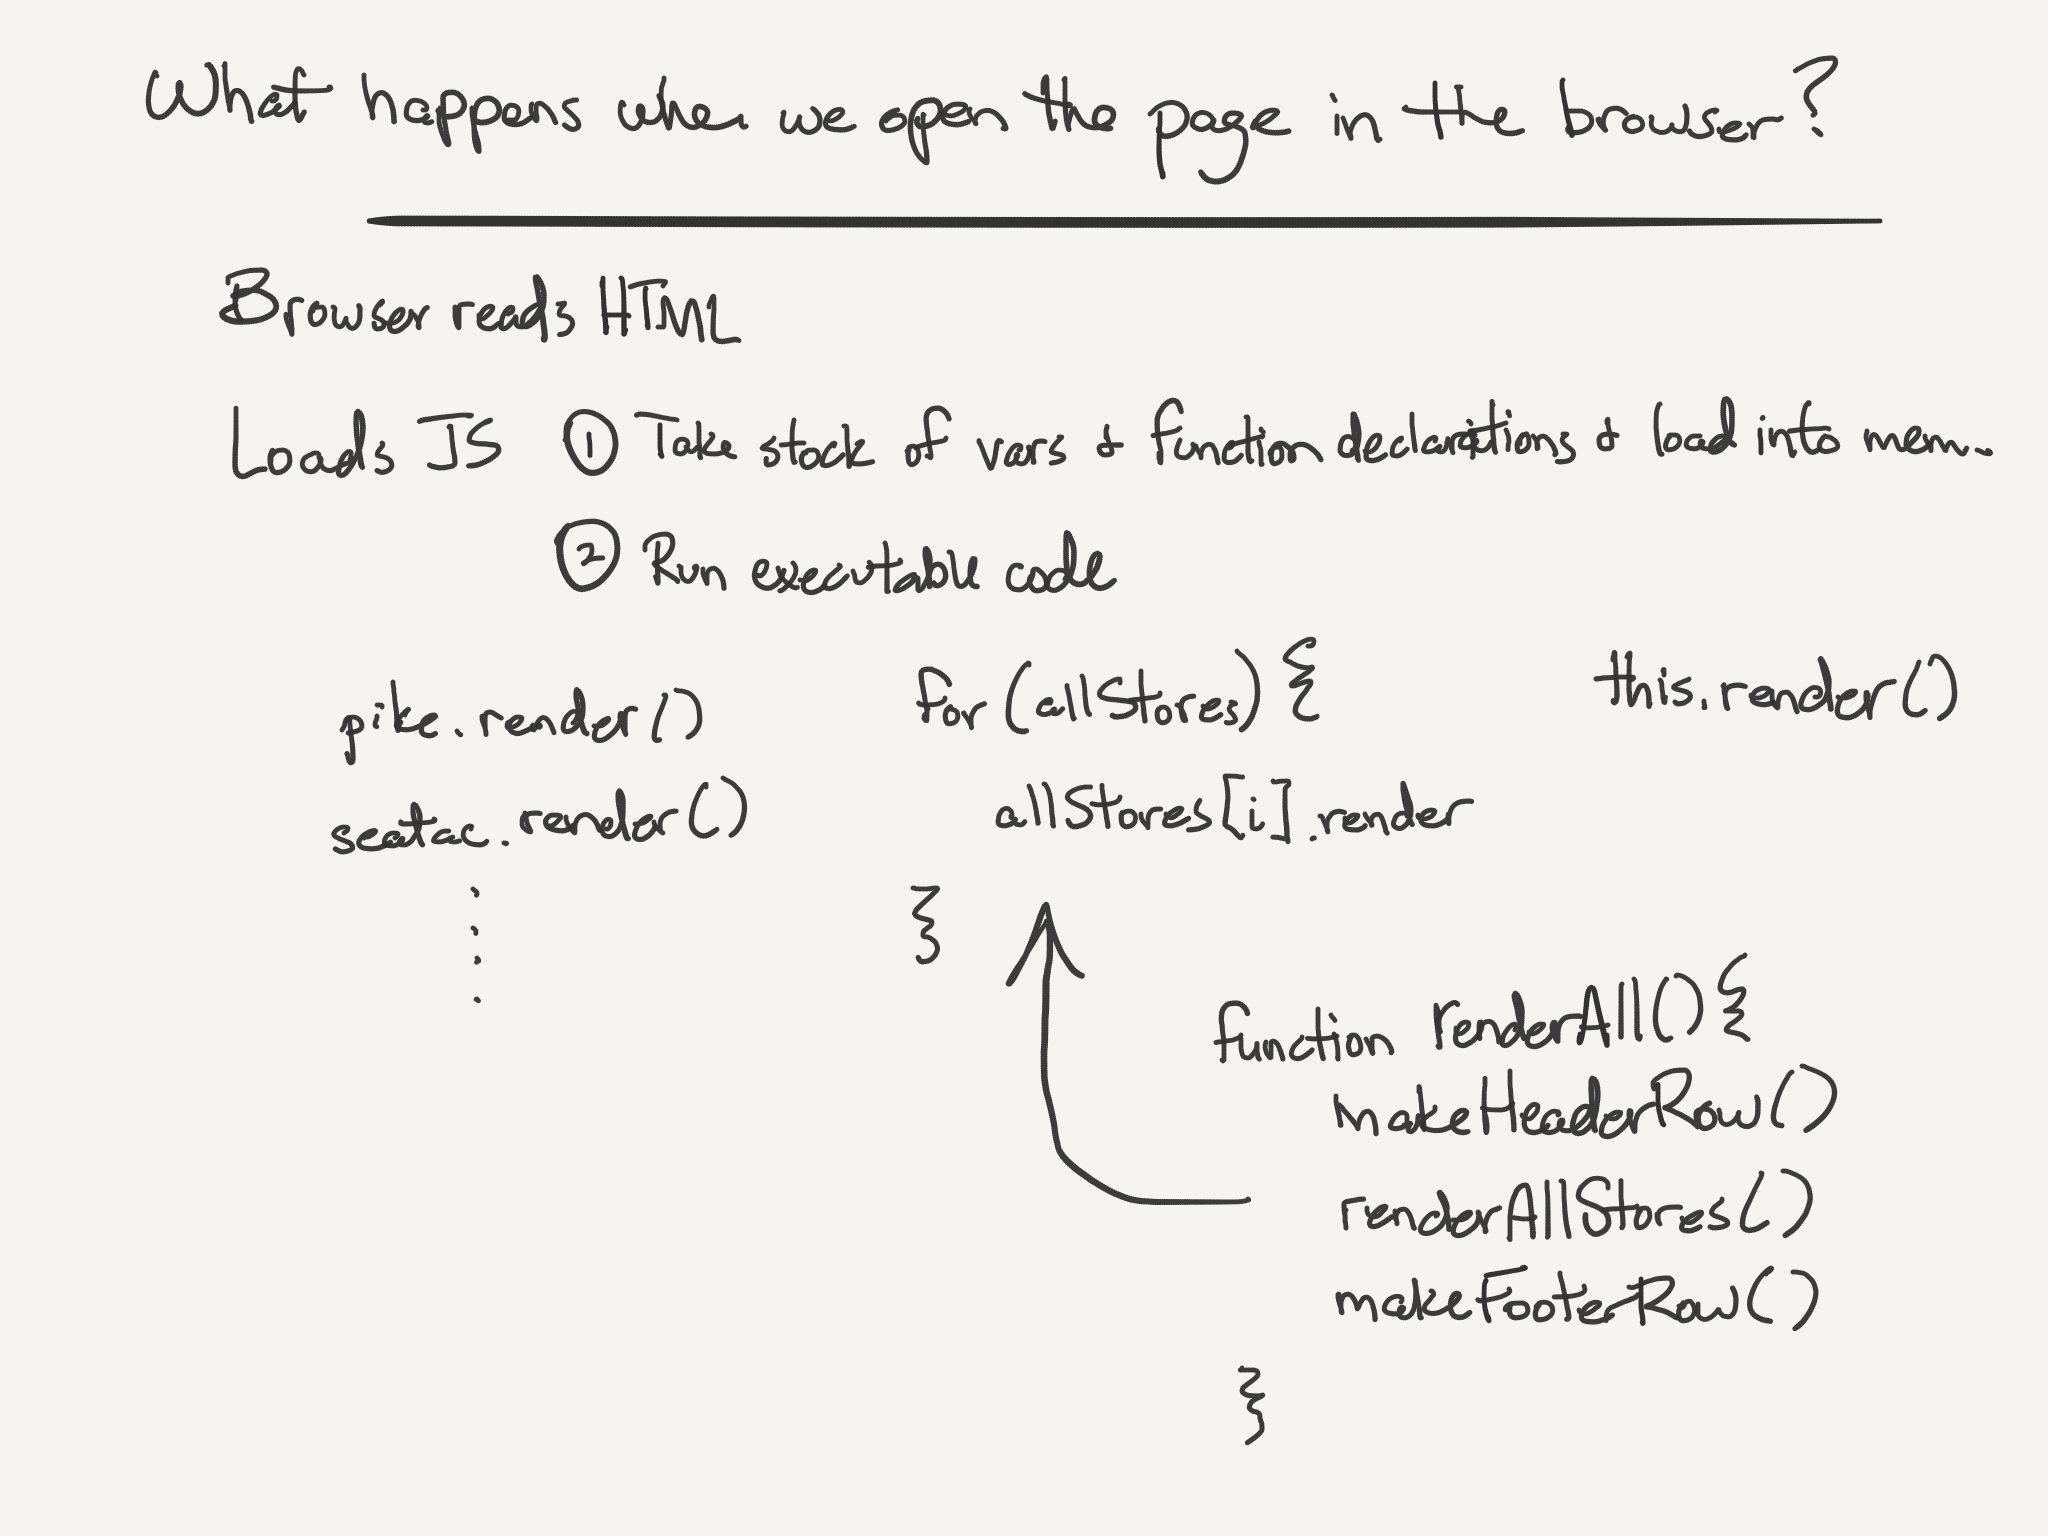 What happens when we open the page in the browser?
Browser reads HTML
Loads JS ① Take stock of vars & function declarations & load into mem..
② Run executable code
pike.render()
seatac.render()
for (allStores) {
allStores[i].render
}
this.render()
function renderAll() {
makeHeaderRow()
renderAllStores()
makeFooterRow()
}